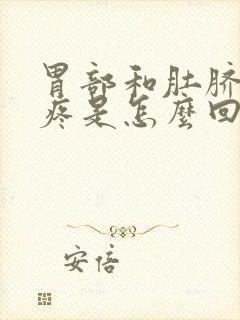 胃部和肚脐
疼是怎麽回
安倍